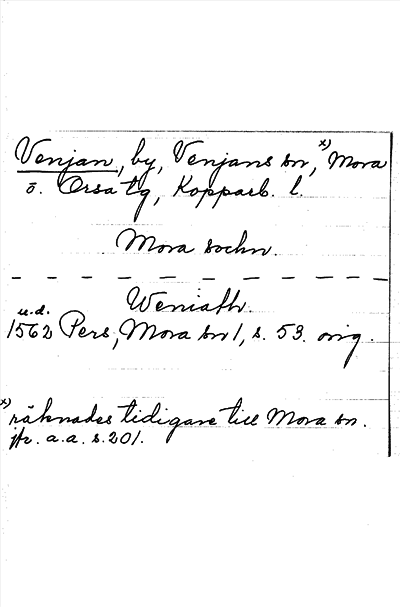 Venjan, by, Venjans sn, x) Mora
o. Orsa tg, Kopparb. l.
Mora sockn.
Weniath.
u.d.
1562 Pers, Mora sn 1, s. 53. orig.
x) räknades tidigare till Mora sn.
jfr. a.a. s. 201.